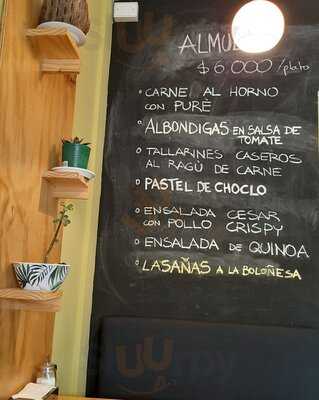 ALMU
$6.000/plato
° CARNE AL HORNO
CON PURÉ
° ALBONDIGAS EN SALSA DE
TOMATE
° TALLARINES CASEROS
AL RAGÚ DE CARNE
° PASTEL DE CHOCLO
° ENSALADA CESAR
CON POLLO CRISPY
° ENSALADA DE QUINOA
° LASAÑAS A LA BOLOÑESA